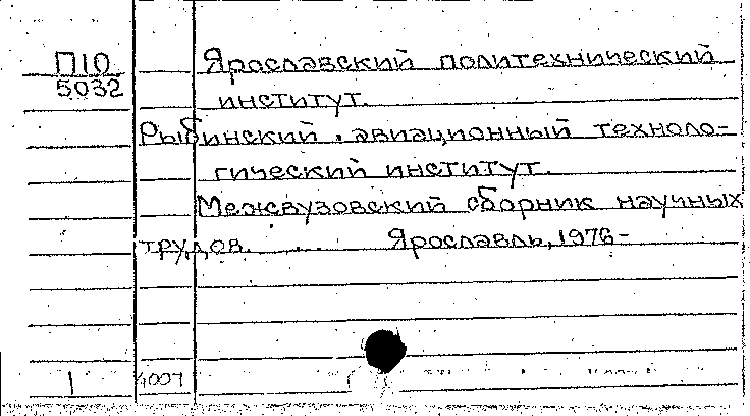 П10 Ярославский политехнический
5032 институт.
Рыбинский авиационный техноло-
гический институт.
Межвузовский сборник научных
трудов. Ярославль, 1976-
1 4007